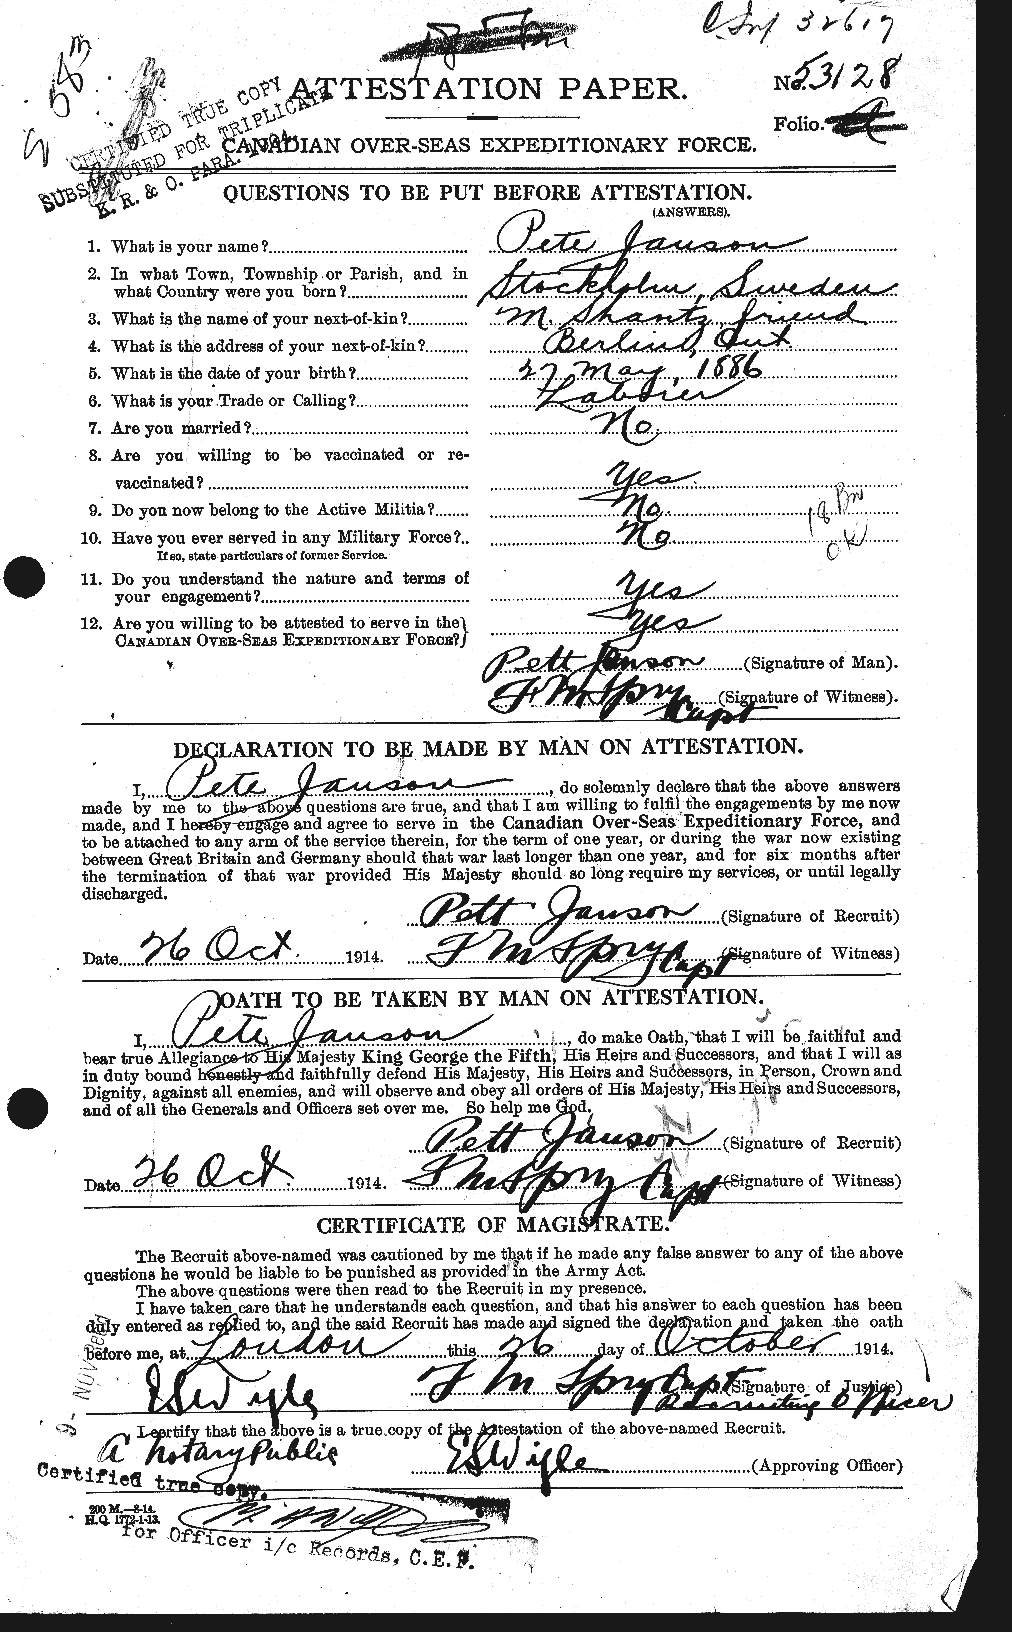 C Inf 32617
ATTESTATION PAPER.
No. 53128
Folio. A
CERTIFIED TRUE COPY
SUBSTITUTED FOR TRIPLICATE
K. R. & O. PARA.
CANADIAN OVER-SEAS EXPEDITIONARY FORCE.
QUESTIONS TO BE PUT BEFORE ATTESTATION.
(ANSWERS).
1. What is your name? Pete Janson
2. In what Town, Township or Parish, and in
what Country were you born? Stockholm, Sweden
3. What is the name of your next-of-kin? M. Shantz, friend
4. What is the address of your next-of-kin? Berlin, Ont.
5. What is the date of your birth? 27 May, 1886
6. What is your Trade or Calling? Laborer
7. Are you married? No.
8. Are you willing to be vaccinated or re-
vaccinated? Yes
9. Do you now belong to the Active Militia? No.
10. Have you ever served in any Military Force? No.
If so, state particulars of former Service.
18 Bn
OK
11. Do you understand the nature and terms of
your engagement? Yes
12. Are you willing to be attested to serve in the
CANADIAN OVER-SEAS EXPEDITIONARY FORCE? Yes
Pett Janson (Signature of Man).
F M Spry Capt (Signature of Witness).
DECLARATION TO BE MADE BY MAN ON ATTESTATION.
I, Pete Janson, do solemnly declare that the above answers
made by me to the above questions are true, and that I am willing to fulfil the engagements by me now
made, and I hereby engage and agree to serve in the Canadian Over-Seas Expeditionary Force, and
to be attached to any arm of the service therein, for the term of one year, or during the war now existing
between Great Britain and Germany should that war last longer than one year, and for six months after
the termination of that war provided His Majesty should so long require my services, or until legally
discharged.
Pett Janson (Signature of Recruit)
Date 26 Oct. 1914. F M Spry Capt (Signature of Witness)
OATH TO BE TAKEN BY MAN ON ATTESTATION.
I, Pete Janson, do make Oath, that I will be faithful and
bear true Allegiance to His Majesty King George the Fifth, His Heirs and Successors, and that I will as
in duty bound honestly and faithfully defend His Majesty, His Heirs and Successors, in Person, Crown and
Dignity, against all enemies, and will observe and obey all orders of His Majesty, His Heirs and Successors,
and of all the Generals and Officers set over me. So help me God.
Pett Janson (Signature of Recruit)
Date 26 Oct. 1914. F M Spry Capt (Signature of Witness)
CERTIFICATE OF MAGISTRATE.
The Recruit above-named was cautioned by me that if he made any false answer to any of the above
questions he would be liable to be punished as provided in the Army Act.
The above questions were then read to the Recruit in my presence.
I have taken care that he understands each question, and that his answer to each question has been
duly entered as replied to, and the said Recruit has made and signed the declaration and taken the oath
before me, at London this 26 day of October 1914.
F M Spry Capt (Signature of Justice)
E S Wigle Recruiting Officer
I certify that the above is a true copy of the Attestation of the above-named Recruit.
A Notary Public E S Wigle (Approving Officer)
Certified true copy.
200 M.—8-14.
H.Q. 1772-1-13.
for Officer i/c Records, C.E.F.